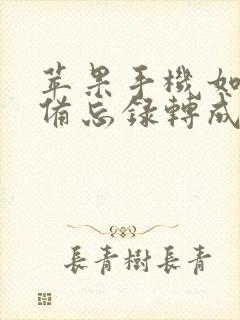 苹果手機如
備忘録轉成
長青樹長青